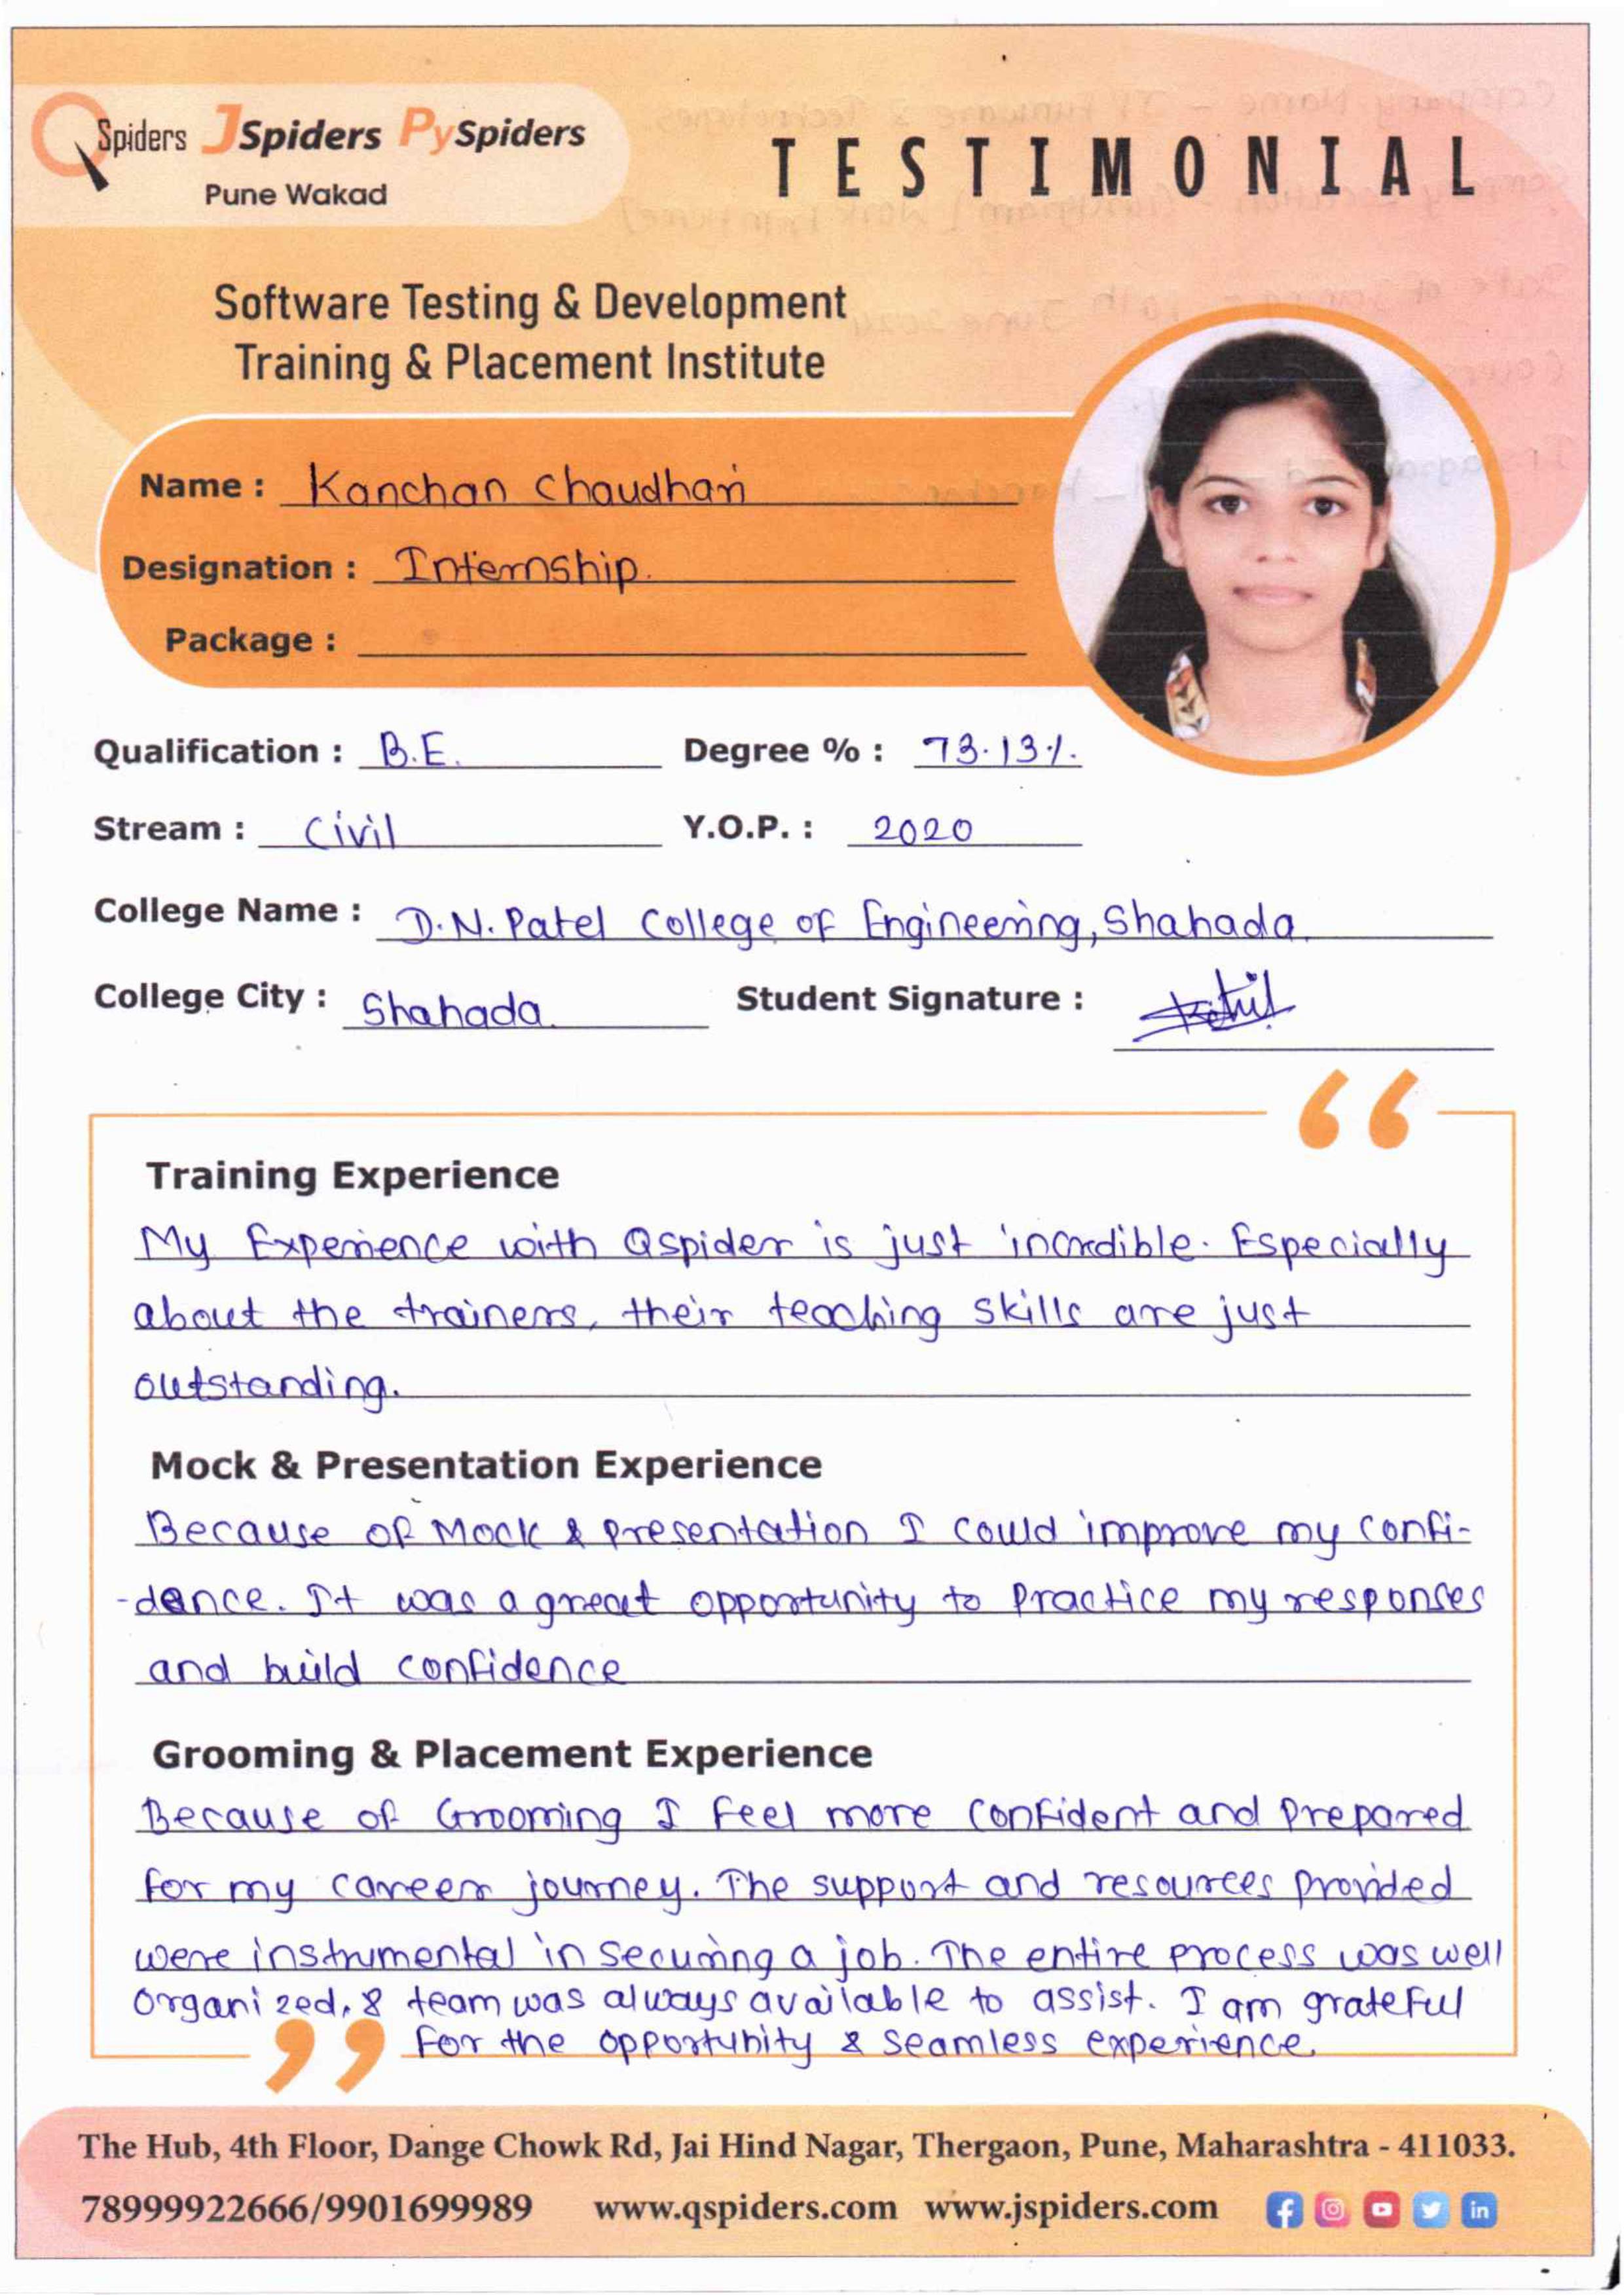 QSpiders JSpiders PySpiders
Pune Wakad
TESTIMONIAL
Software Testing & Development
Training & Placement Institute
Name : Kanchan Chaudhari
Designation : Internship.
Package :
Qualification : B.E. Degree % : 73.13%.
Stream : Civil Y.O.P. : 2020
College Name : D.N. Patel College of Engineering, Shahada.
College City : Shahada. Student Signature :
Training Experience
My Experience with Qspider is just incredible. Especially
about the trainers, their teaching skills are just
outstanding.
Mock & Presentation Experience
Because of Mock & Presentation I could improve my confi-
-dence. It was a great opportunity to Practice my responses
and build confidence
Grooming & Placement Experience
Because of Grooming I feel more confident and Prepared
for my career journey. The support and resources provided
were instrumental in securing a job. The entire process was well
organized, & team was always available to assist. I am grateful
for the opportunity & seamless experience.
The Hub, 4th Floor, Dange Chowk Rd, Jai Hind Nagar, Thergaon, Pune, Maharashtra - 411033.
78999922666/9901699989 www.qspiders.com www.jspiders.com